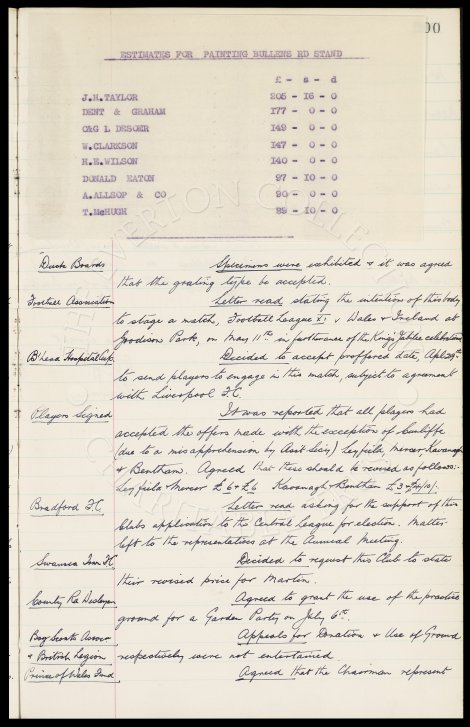 00
ESTIMATES FOR PAINTING BULLENS RD STAND
£ - s - d
J.H.TAYLOR 205 - 16 - 0
DENT & GRAHAM 177 - 0 - 0
C&G L DESOER 149 - 0 - 0
W.CLARKSON 147 - 0 - 0
H.E.WILSON 140 - 0 - 0
DONALD EATON 97 - 10 - 0
A.ALLSOP & CO 90 - 0 - 0
T.McHUGH 89 - 10 - 0
Duck Boards Specimens were exhibited & it was agreed
that the grating type be accepted.
Football Association Letter read, stating the intention of this body
to stage a match, Football League XI v Wales & Ireland at
Goodison Park, on May 11th in furtherance of the King's Jubilee celebrations
B'head Hospital Cup Decided to accept proffered date, Apl 29th
to send players to engage in this match, subject to agreement
with Liverpool F.C.
Players Signed It was reported that all players had
accepted the offers made with the exception of Cunliffe
(due to a misapprehension by Asst Secy) Leyfield, Mercer, Kavanagh
& Bentham. Agreed that these should be revised as follows:-
Leyfield & Mercer £6 & £6 Kavanagh & Bentham £3
Bradford F.C. Letter read asking for the support of this
Clubs application to the Central League for election. Matter
left to the representatives at the Annual Meeting.
Swansea Town F.C. Decided to request this Club to state
their revised price for Martin.
County Rd Wesleyan Agreed to grant the use of the practice
ground for a Garden Party on July 6th.
Boy Scouts Assocn Appeals for Donation & Use of Ground
& British Legion respectively were not entertained
Prince of Wales Fund Agreed that the Chairman represent